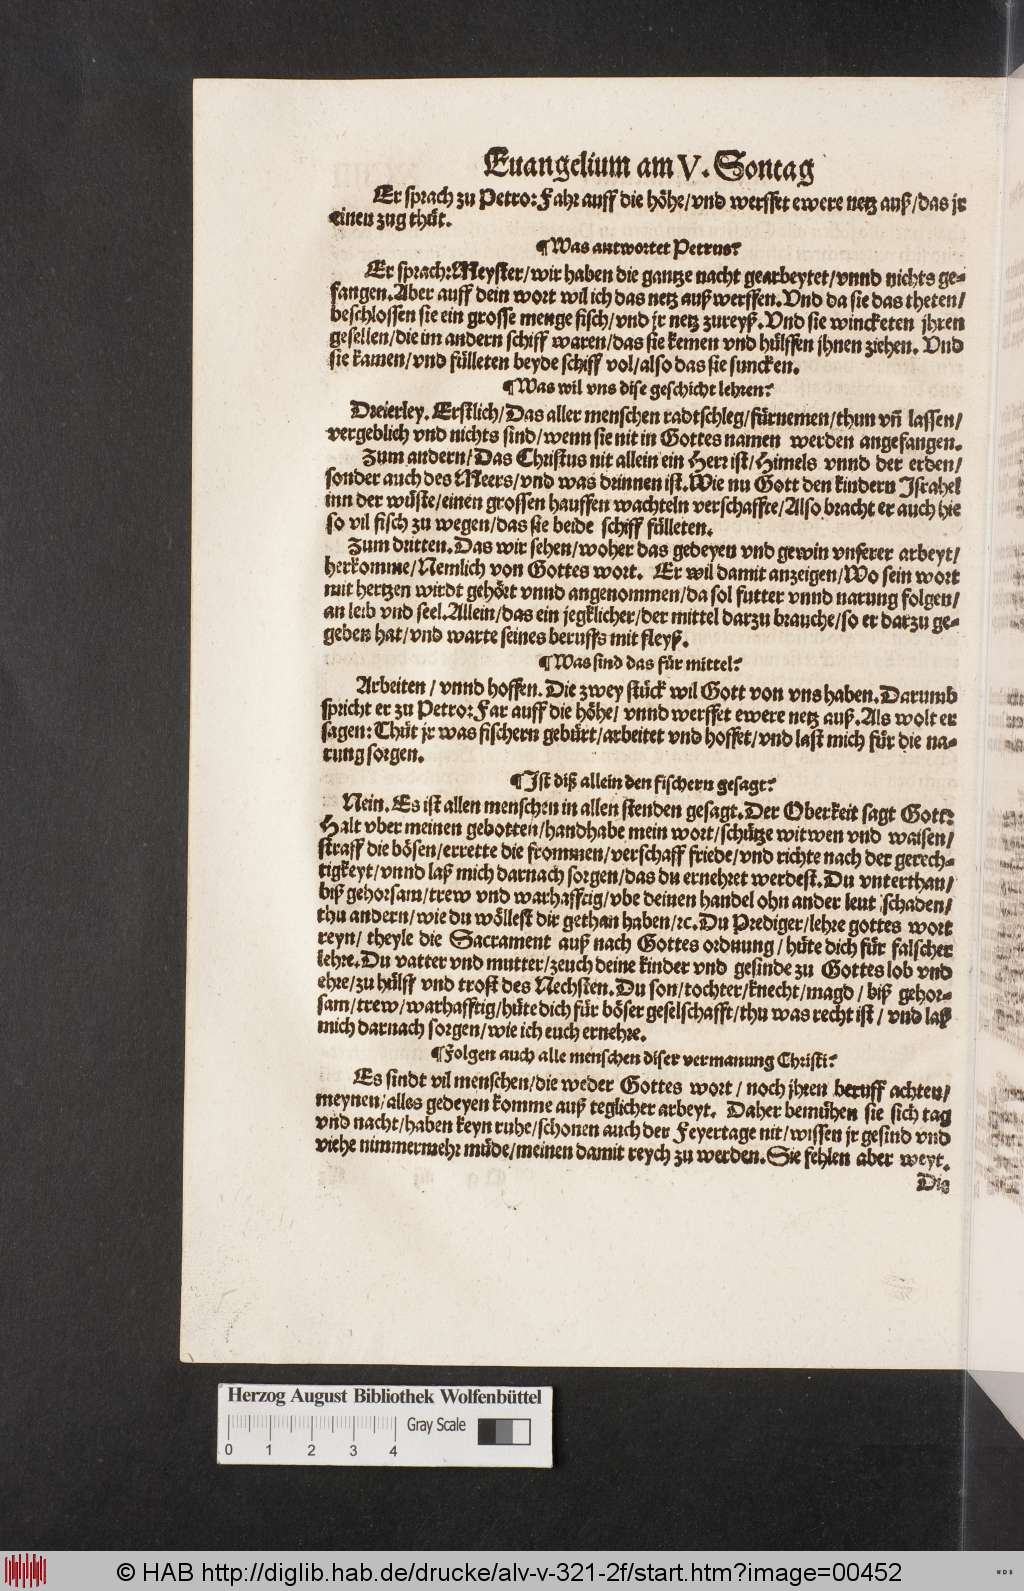 Euangelium am V. Sontag
Er sprach zu Petro: Fahr auff die höhe/vnd werffet ewere netz auß/das jr
einen zug thüt.
¶ Was antwortet Petrus?
Er sprach: Meyster/wir haben die gantze nacht gearbeytet/vnnd nichts ge-
fangen. Aber auff dein wort wil ich das netz auß werffen. Vnd da sie das theten/
beschlossen sie ein grosse menge fisch/vnd jr netz zureyß. Vnd sie wincketen jhren
gesellen/die im andern schiff waren/das sie kemen vnd hülffen jhnen ziehen. Vnd
sie kamen/vnd fülleten beyde schiff vol/also das sie suncken.
¶ Was wil vns dise geschicht lehren?
Dreierley. Erstlich/Das aller menschen radtschleg/fürnemen/thun vñ lassen/
vergeblich vnd nichts sind/wenn sie nit in Gottes namen werden angefangen.
Zum andern/Das Christus nit allein ein Herr ist/Himels vnnd der erden/
sonder auch des Meers/vnd was drinnen ist. Wie nu Gott den kindern Israhel
inn der wüste/einen grossen hauffen wachteln verschaffte/Also bracht er auch hie
so vil fisch zu wegen/das sie beide schiff fülleten.
Zum dritten. Das wir sehen/woher das gedeyen vnd gewin vnserer arbeyt/
herkomme/Nemlich von Gottes wort. Er wil damit anzeigen/Wo sein wort
mit hertzen wirdt gehört vnnd angenommen/da sol futter vnnd narung folgen/
an leib vnd seel. Allein/das ein jegklicher/der mittel darzu brauche/so er darzu ge-
geben hat/vnd warte seines beruffs mit fleyß.
¶ Was sind das für mittel?
Arbeiten/vnnd hoffen. Die zwey stück wil Gott von vns haben. Darumb
spricht er zu Petro: Far auff die höhe/vnnd werffet ewere netz auß. Als wolt er
sagen: Thüt jr was fischern gebürt/arbeitet vnd hoffet/vnd last mich für die na-
rung sorgen.
¶ Ist diß allein den fischern gesagt?
Nein. Es ist allen menschen in allen stenden gesagt. Der Oberkeit sagt Gott:
Halt vber meinen gebotten/handhabe mein wort/schütze witwen vnd waisen/
straff die bösen/errette die frommen/verschaff friede/vnd richte nach der gerech-
tigkeyt/vnnd laß mich darnach sorgen/das du ernehret werdest. Du vnterthan/
biß gehorsam/trew vnd warhafftig/vbe deinen handel ohn ander leut schaden/
thu andern/wie du wöllest dir gethan haben/ꝛc. Du Prediger/lehre gottes wort
reyn/theyle die Sacrament auß nach Gottes ordnung/hüte dich für falscher
lehre. Du vatter vnd mutter/zeuch deine kinder vnd gesinde zu Gottes lob vnd
ehre/zu hülff vnd trost des Nechsten. Du son/tochter/knecht/magd/biß gehor-
sam/trew/warhafftig/hüte dich für böser geselschafft/thu was recht ist/vnd laß
mich darnach sorgen/wie ich euch ernehre.
¶ Folgen auch alle menschen diser vermanung Christi?
Es sindt vil menschen/die weder Gottes wort/noch jhren beruff achten/
meynen/alles gedeyen komme auß teglicher arbeyt. Daher bemühen sie sich tag
vnd nacht/haben keyn ruhe/schonen auch der Feyertage nit/wissen jr gesind vnd
viehe nimmermehr müde/meinen damit reych zu werden. Sie fehlen aber weyt.
Die
Herzog August Bibliothek Wolfenbüttel
Gray Scale
0 1 2 3 4
© HAB http://diglib.hab.de/drucke/alv-v-321-2f/start.htm?image=00452